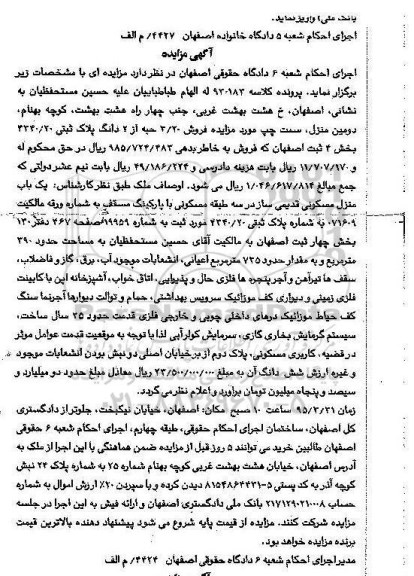 بانک ملی) واریز نماید.
اجرای احکام شعبه ۵ دادگاه خانواده اصفهان ۴۴۲۷/ م الف
آگهی مزایده
اجرای احکام شعبه ۶ دادگاه حقوقی اصفهان در نظر دارد مزایده ای با مشخصات زیر
برگزار نماید. پرونده کلاسه ۹۳۰۱۸۳ له الهام طباطباییان علیه حسین مستحفظیان به
نشانی، اصفهان، خ هشت بهشت غربی، جنب چهار راه هشت بهشت، کوچه بهنام،
دومین منزل، سمت چپ مورد مزایده فروش ۳/۲۰ حبه از ۲ دانگ پلاک ثبتی ۴۳۴۰/۲۰
بخش ۴ ثبت اصفهان که فروش به خاطر بدهی ۹۸۵/۷۲۴/۴۸۳ ریال در حق محکوم له
و ۱۱/۷۰۷/۹۷۰ ریال بابت هزینه دادرسی و ۴۹/۱۸۶/۲۲۴ ریال بابت نیم عشر دولتی که
جمع مبالغ ۱/۰۴۶/۶۱۷/۸۱۴ ریال می شود. اوصاف ملک طبق نظر کارشناس: یک باب
منزل مسکونی قدیمی ساز در سه طبقه مسکونی با پارکینگ مسقف به شماره ورقه مالکیت
۰۷۱۶۰۹ به شماره پلاک ثبتی ۴۳۴۰/۲۰ مورد ثبت به شماره ۱۹۹۵۹ صفحه ۴۶۷ دفتر ۱۳۰
بخش چهار ثبت اصفهان به مالکیت آقای حسین مستحفظیان به مساحت حدود ۳۹۰
مترمربع و به مقدار حدود ۷۳۵ مترمربع اعیانی، انشعابات موجود آب، برق، گاز و فاضلاب،
سقف ها تیرآهن و آجر پنجره ها فلزی حال و پذیرایی، اتاق خواب، آشپزخانه اپن با کابینت
فلزی زمینی و دیواری کف موزائیک سرویس بهداشتی، حمام و توالت دیوارها آجرنما سنگ
کف حیاط موزائیک درهای داخلی چوبی و خارجی فلزی قدمت حدود ۲۵ سال ساخت،
سیستم گرمایش بخاری گازی، سرمایش کولر آبی لذا با توجه به موقعیت قدمت عوامل موثر
در قضیه، کاربری مسکونی، پلاک دوم از بر خیابان اصلی دو نبش بودن انشعابات موجود
و غیره ارزش شش دانگ آن به مبلغ ۲۳/۵۰۰/۰۰۰/۰۰۰ ریال معادل مبلغ حدود دو میلیارد و
سیصد و پنجاه میلیون تومان برآورد و اعلام نظر می گردد.
زمان ۹۵/۳/۳۱ ساعت ۱۰ صبح مکان: اصفهان، خیابان نیکبخت، جلوتر از دادگستری
کل اصفهان، ساختمان اجرای احکام حقوقی، طبقه چهارم، اجرای احکام شعبه ۶ حقوقی
اصفهان طالبین خرید می توانند ۵ روز قبل از مزایده ضمن هماهنگی با این اجرا از ملک به
آدرس اصفهان، خیابان هشت بهشت غربی کوچه بهنام شماره ۲۵ به شماره پلاک ۲۳ نبش
کوچه آذر به کد پستی ۸۱۵۴۸۶۴۴۳۱-۵ دیدن کرده و با سپردن ۲۰٪ ارزش اموال به شماره
حساب ۲۱۷۱۲۹۰۲۱۰۰۰۸ بانک ملی دادگستری اصفهان و ارائه فیش به این اجرا در جلسه
مزایده شرکت کنند. مزایده از قیمت پایه شروع می شود پیشنهاد دهنده بالاترین قیمت
برنده مزایده خواهد بود.
مدیر اجرای احکام شعبه ۶ دادگاه حقوقی اصفهان ۴۴۲۴/ م الف